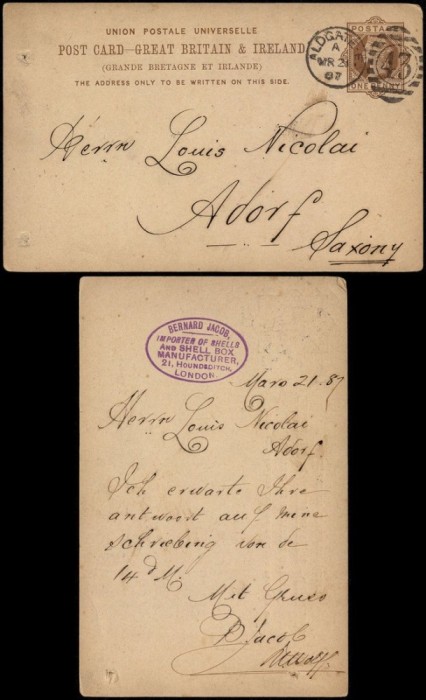 UNION POSTALE UNIVERSELLE
POST CARD—GREAT BRITAIN & IRELAND
(GRANDE BRETAGNE ET IRLANDE)
THE ADDRESS ONLY TO BE WRITTEN ON THIS SIDE.
POSTAGE
ONE PENNY
ALDGATE
A
MR 21
87
Herrn Louis Nicolai
Adorf
Saxony
BERNARD JACOB,
IMPORTER OF SHELLS
AND SHELL BOX
MANUFACTURER,
21, HOUNDSDITCH,
LONDON.
Marz 21. 87
Herrn Louis Nicolai
Adorf
Ich erwarte Ihre
antwort auf mine
schreibing von de
14 d M.
Mit Gruss
B Jacob